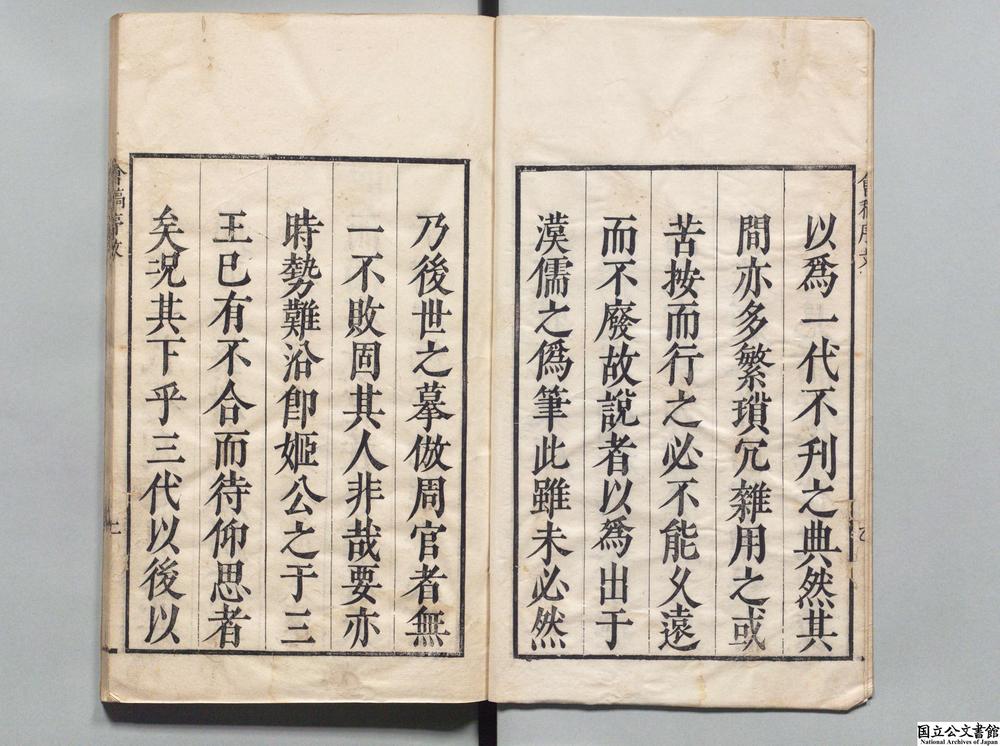 以爲一代不刋之典然其
間亦多繁瑣冗雜用之或
苦按而行之必不能久遠
而不廢故說者以爲出于
漢儒之僞筆此雖未必然
乃後世之摹倣周官者無
一不敗固其人非哉要亦
時勢難沿卽姬公之于三
王已有不合而待仰思者
矣況其下乎三代以後以
国立公文書館
National Archives of Japan